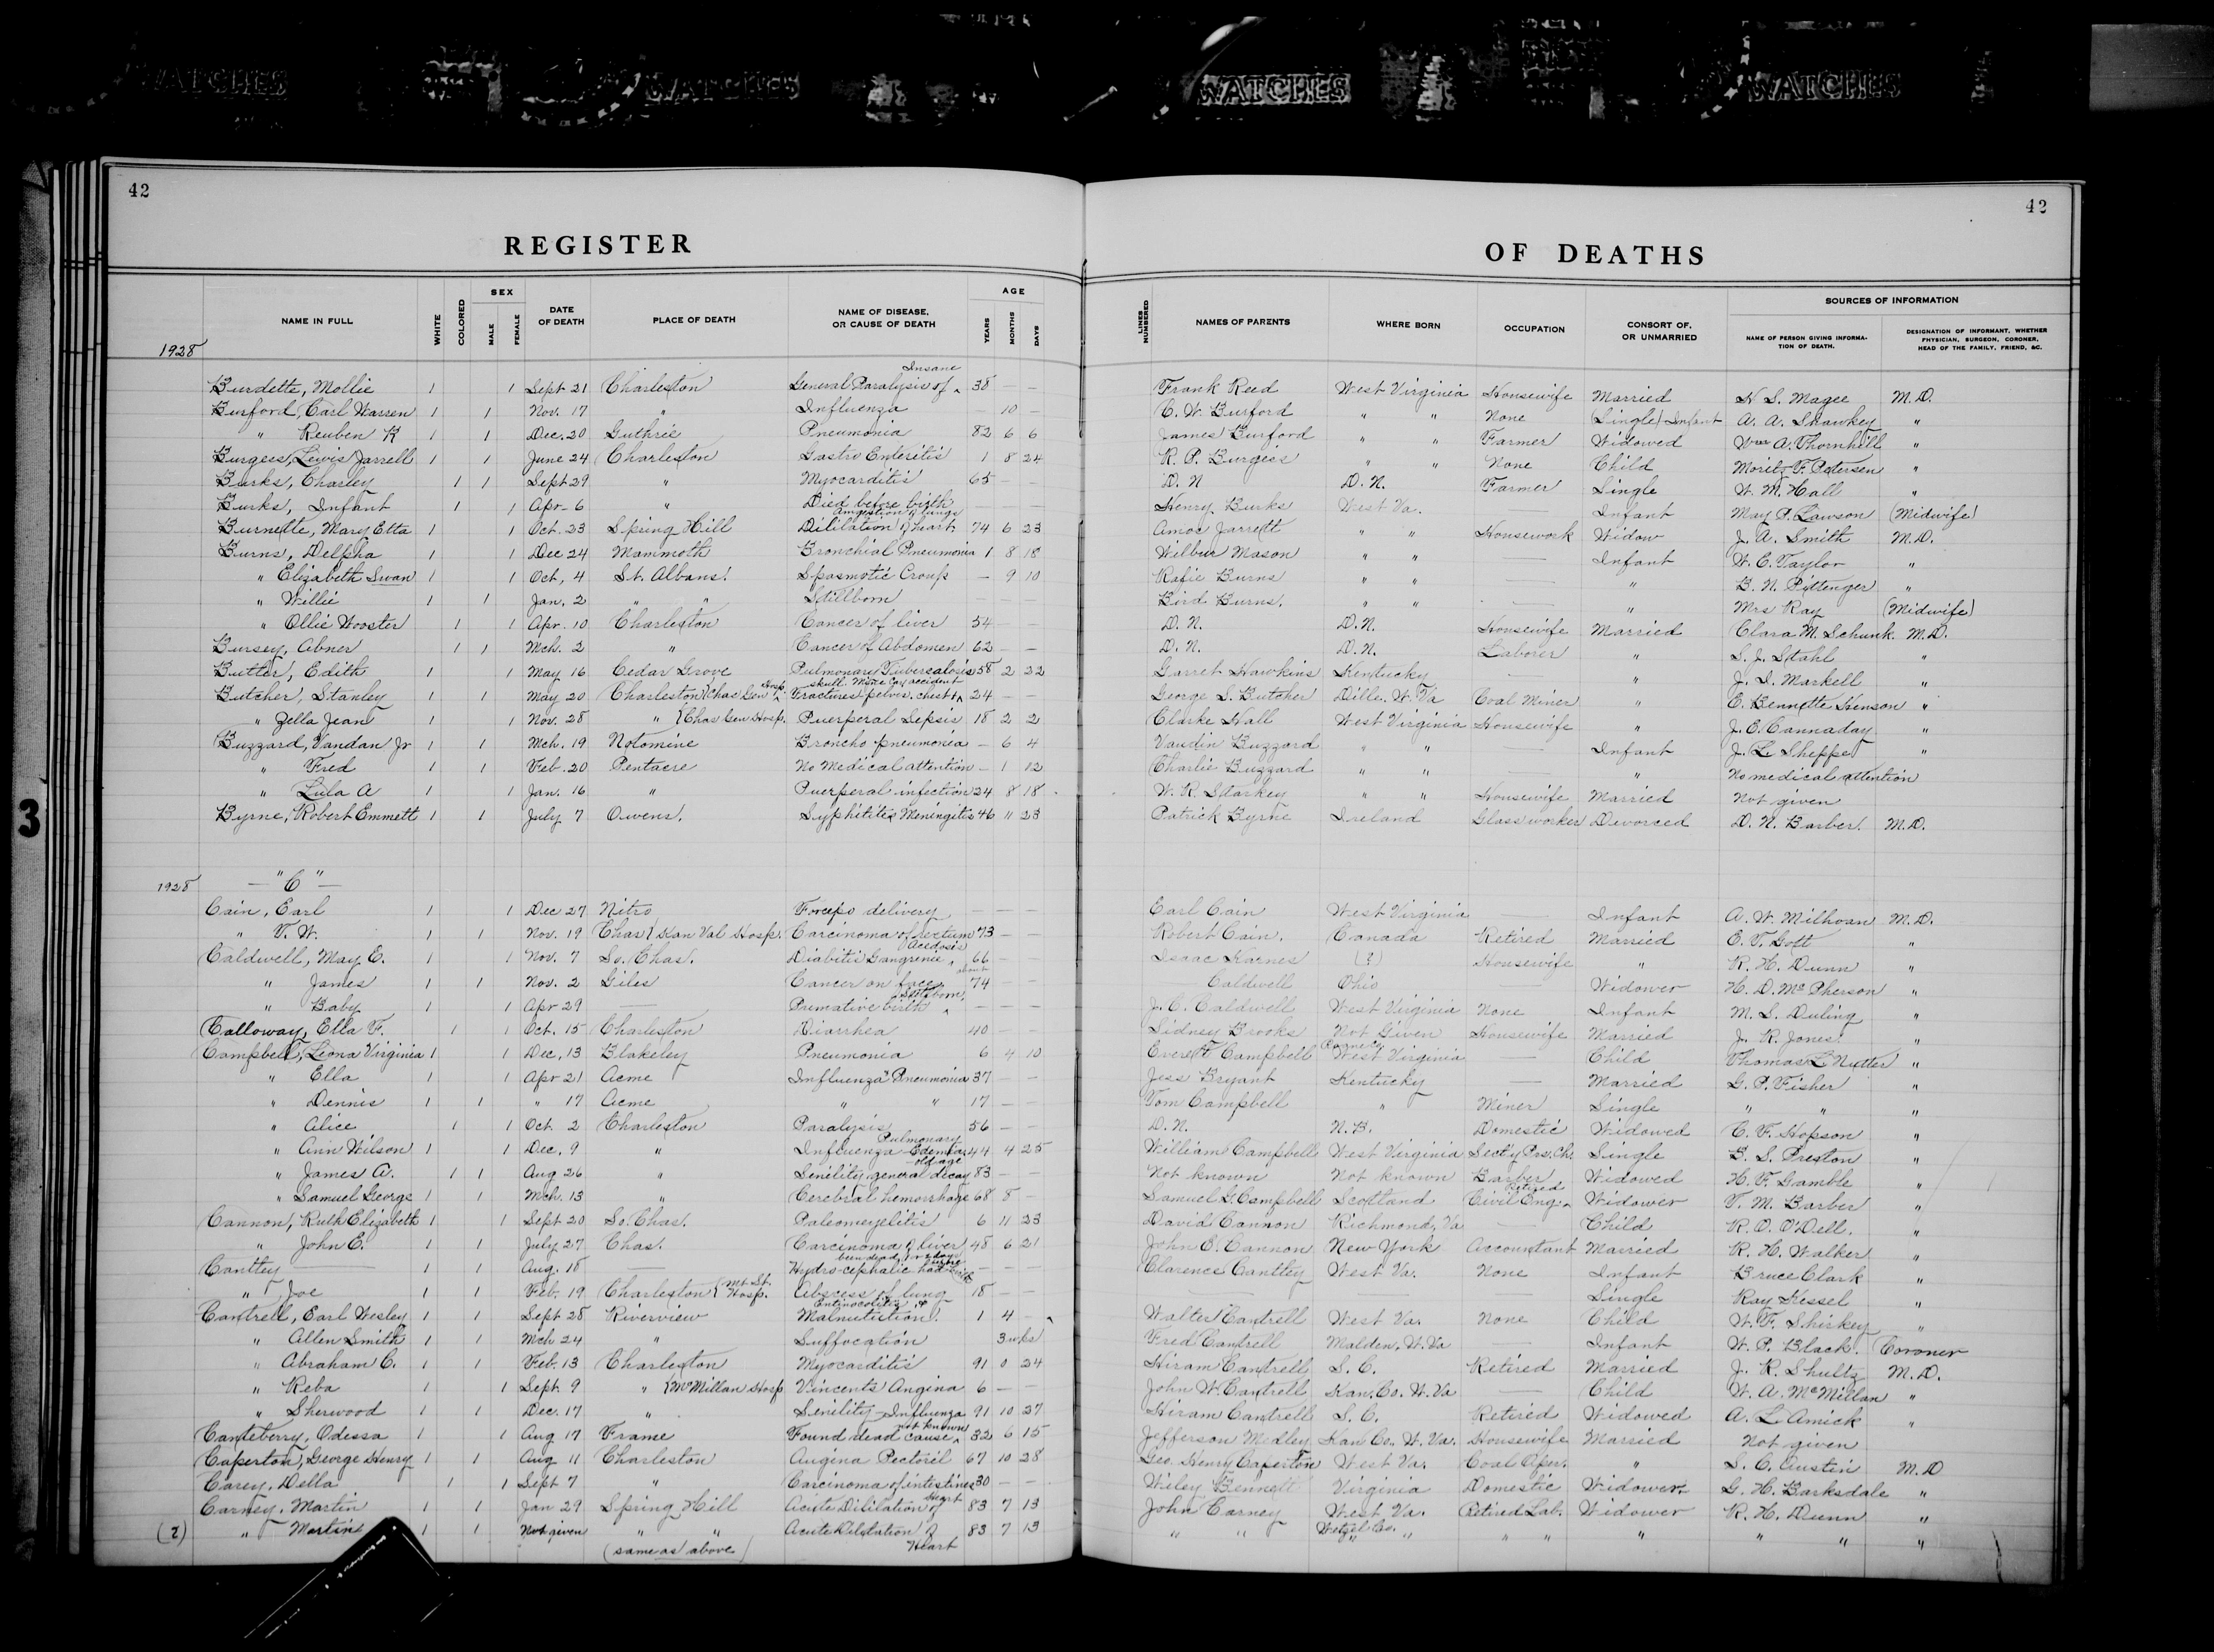 WATCHES WATCHES WATCHES WATCHES
42 42
REGISTER OF DEATHS
NAME IN FULL WHITE COLORED SEX MALE FEMALE DATE OF DEATH PLACE OF DEATH NAME OF DISEASE, OR CAUSE OF DEATH AGE YEARS MONTHS DAYS LINES NUMBERED NAMES OF PARENTS WHERE BORN OCCUPATION CONSORT OF, OR UNMARRIED SOURCES OF INFORMATION NAME OF PERSON GIVING INFORMATION OF DEATH. DESIGNATION OF INFORMANT, WHETHER PHYSICIAN, SURGEON, CORONER, HEAD OF THE FAMILY, FRIEND, &C.
1928
Burdette, Mollie 1 1 Sept 21 Charleston General Paralysis of Insane 38 — — Frank Reed West Virginia Housewife Married H. S. Magee M.D.
Burford, Carl Warren 1 1 Nov. 17 " Influenza — 10 — C. W. Burford " " None (Single) Infant A. A. Shawkey "
" Reuben R 1 1 Dec. 20 Guthrie Pneumonia 82 6 6 James Burford " " Farmer Widowed Wm A. Thornhill "
Burgess, Lewis Jarrell 1 1 June 24 Charleston Gastro Enteritis 1 8 24 R. P. Burgess " " None Child Moritz F. Petersen "
Burks, Charley 1 1 Sept 29 " Myocarditis 65 — — D. N D. N. Farmer Single W. M. Hall "
Burks, Infant 1 1 Apr. 6 " Died before birth — — — Henry Burks West Va. — Infant May P. Lawson (Midwife)
Burnette, Mary Etta 1 1 Oct. 23 Spring Hill Dilitation of heart 74 6 23 Amos Jarrett " " Housework Widow J. A. Smith M.D.
Burns, Delpha 1 1 Dec 24 Mammoth Bronchial Pneumonia 1 8 18 Wilbur Mason " " — Infant W. C. Taylor "
" Elizabeth Swan 1 1 Oct, 4 St. Albans. Spasmotic Croup — 9 10 Rafie Burns " " — " B. N. Pittenger "
" Willie 1 1 Jan. 2 " " Stillborn — — — Bird Burns. " " — " Mrs Ray (Midwife)
" Ollie Wooster 1 1 Apr. 10 Charleston Cancer of liver 54 — — D. N. D.N. Housewife Married Clara M. Schunk M.D.
Bursey, Abner 1 1 Mch. 2 " Cancer of Abdomen 62 — — D. N. D.N. Laborer " S. J. Stahl "
Butler, Edith 1 1 May 16 Cedar Grove Pulmonary Tubersalosis 58 2 22 Garret Hawkins Kentucky — " J. I. Markell "
Butcher, Stanley 1 1 May 20 Charleston (Chas Gen Hosp. Fractures pelvis, chest & skull. Mine car accident 24 — — George S. Butcher Dille. W. Va Coal Miner " C. Bennette Henson "
" Zella Jean 1 1 Nov. 28 " (Chas Gen Hosp. Puerperal Sepsis 18 2 2 Clarke Hall West Virginia Housewife " J. C. Cannaday "
Buzzard, Vandan Jr 1 1 Mch. 19 Notomine Broncho pneumonia — 6 4 Vaudin Buzzard " " Infant J. L. Sheppe "
" Fred 1 1 Feb. 20 Pentacre No Medical attention — 1 12 Charlie Buzzard " " — " No medical attention
" Lula A 1 1 Jan. 16 " Puerperal infection 24 8 18 W. R. Starkey " " Housewife Married Not given
Byrne, Robert Emmett 1 1 July 7 Owens. Syphititis Meningitis 46 11 23 Patrick Byrne Ireland Glass worker Divorced D. N. Barber. M.D.
1928 — "C" —
Cain, Earl 1 1 Dec 27 Nitro Forceps delivery — — — Earl Cain West Virginia — Infant A. W. Milhoan M.D.
" T. W. 1 1 Nov. 19 Chas (Kan Val Hosp. Carcinoma of rectum 73 — — Robert Cain. Canada Retired Married E. T. Gott "
Caldwell, May E. 1 1 Nov. 7 So. Chas. Diabitis Gangrene, Acedosis 66 — — Isaac Karnes (?) Housewife " R. H. Dunn "
" James 1 1 Nov. 2 Giles Cancer on face about 74 — — — Caldwell Ohio — Widower H. D. McPherson "
" Baby 1 1 Apr 29 — Premative birth Stillborn — — — J. C. Caldwell West Virginia None Infant M. S. Duling "
Calloway, Ella F. 1 1 Oct. 15 Charleston Diarrhea 40 — — Sidney Brooks Not Given Housewife Married J. R. Jones. "
Campbell, Leona Virginia 1 1 Dec. 13 Blakeley Pneumonia 6 4 10 Everett Campbell West Virginia — Child Thomas L Nutter "
" Ella 1 1 Apr 21 Acme Influenza Pneumonia 37 — — Jess Bryant Kentucky — Married G. P. Fisher "
" Dennis 1 1 " 17 Acme " " 17 — — Tom Campbell " Miner Single " " "
" Alice 1 1 Oct. 2 Charleston Paralysis 56 — — D. N. N. B. Domestic Widowed C. F. Hopson "
" Ann Wilson 1 1 Dec. 9 " Influenza Pulmonary Edemia 44 4 25 William Campbell West Virginia Sect'y Prs. Ch. Single B. S. Preston "
" James A. 1 1 Aug 26 " Senility, general decay old age 83 — Not known Not known Barber Widowed H. F. Gamble "
" Samuel George 1 1 Mch. 13 " Cerebral hemorrhage 68 8 — Samuel G. Campbell Scotland Civil Eng. Retired Widower T. M. Barber "
Cannon, Ruth Elizabeth 1 1 Sept 20 So. Chas. Paleomeyelitis 6 11 23 David Cannon Richmond, Va — Child R. O. O'Dell. "
" John E. 1 1 July 27 Chas. Carcinoma of liver 48 6 21 John E. Cannon New York Accountant Married R. H. Walker "
Cantley — 1 1 Aug. 18 — Hydro cephalic had been dead — — — Clarence Cantley West Va. None Infant Bruce Clark "
" Joe 1 1 Feb. 19 Charleston (Mt. St. Hosp. Abscess of lung 18 — — — — — Single Ray Kessel "
Cantrell, Earl Wesley 1 1 Sept 28 Riverview Entinocolitis & Malnutiction. 1 4 - Walter Cantrell West Va. None Child W. F. Shirkey "
" Allen Smith 1 1 Mch 24 " Suffocation 3 wks Fred Cantrell Malden, W. Va — Infant W. P. Black. Coroner
" Abraham C. 1 1 Feb. 13 Charleston Myocarditis 91 0 24 Hiram Cantrell S. C. Retired Married J. R. Shultz M.D.
" Reba 1 1 Sept. 9 " (McMillan Hosp Vincents Angina 6 — — John W. Cantrell Kan. Co. W. Va — Child W. A. McMillan "
" Sherwood 1 1 Dec. 17 " Senility — Influenza 91 10 27 Hiram Cantrell S. C. Retired Widowed A. L. Amick "
Canteberry, Odessa 1 1 Aug 17 Frame Found dead cause not known 32 6 15 Jefferson Medley Kan Co. W. Va. Housewife Married Not given
Caperton, George Henry 1 1 Aug 11 Charleston Angina Pectoril 67 10 28 Geo. Henry Caperton West Va. Coal Oper. " S. C. Austin M.D
Carey, Della 1 1 Sept 7 " Carcinoma of intestines 30 — — Wiley Bennett Virginia Domestic Widower G. H. Barksdale "
Carney, Martin 1 1 Jan 29 Spring Hill Acute Dilitation of Heart 83 7 13 John Carney West Va. Retired Lab. Widower R. H. Dunn "
(2) " Martin 1 1 Not given " " Acute Dilitation of Heart 83 7 13 " " Wetzel Co. " " " " " " "
(same as above)
3